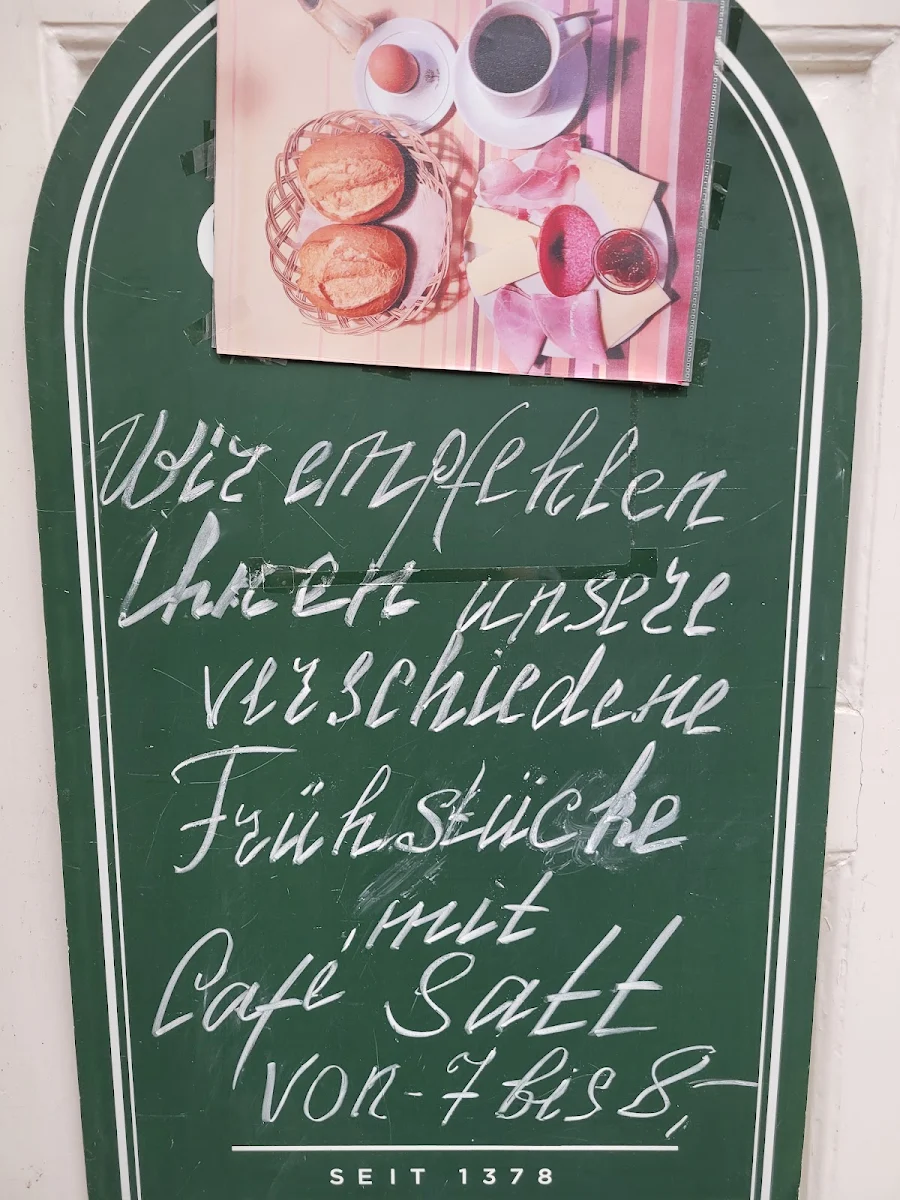 Wir empfehlen
Ihnen unsere
verschiedene
Frühstücke
mit
Café Satt
von - 7 bis 8,-
SEIT 1378